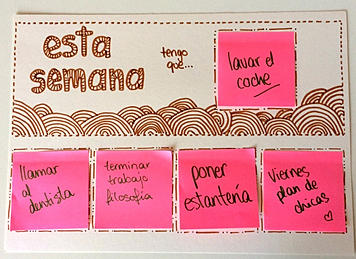 esta
semana
tengo
que...
lavar el
coche
llamar
al
dentista
terminar
trabajo
filosofía
poner
estantería
Viernes
plan de
chicas